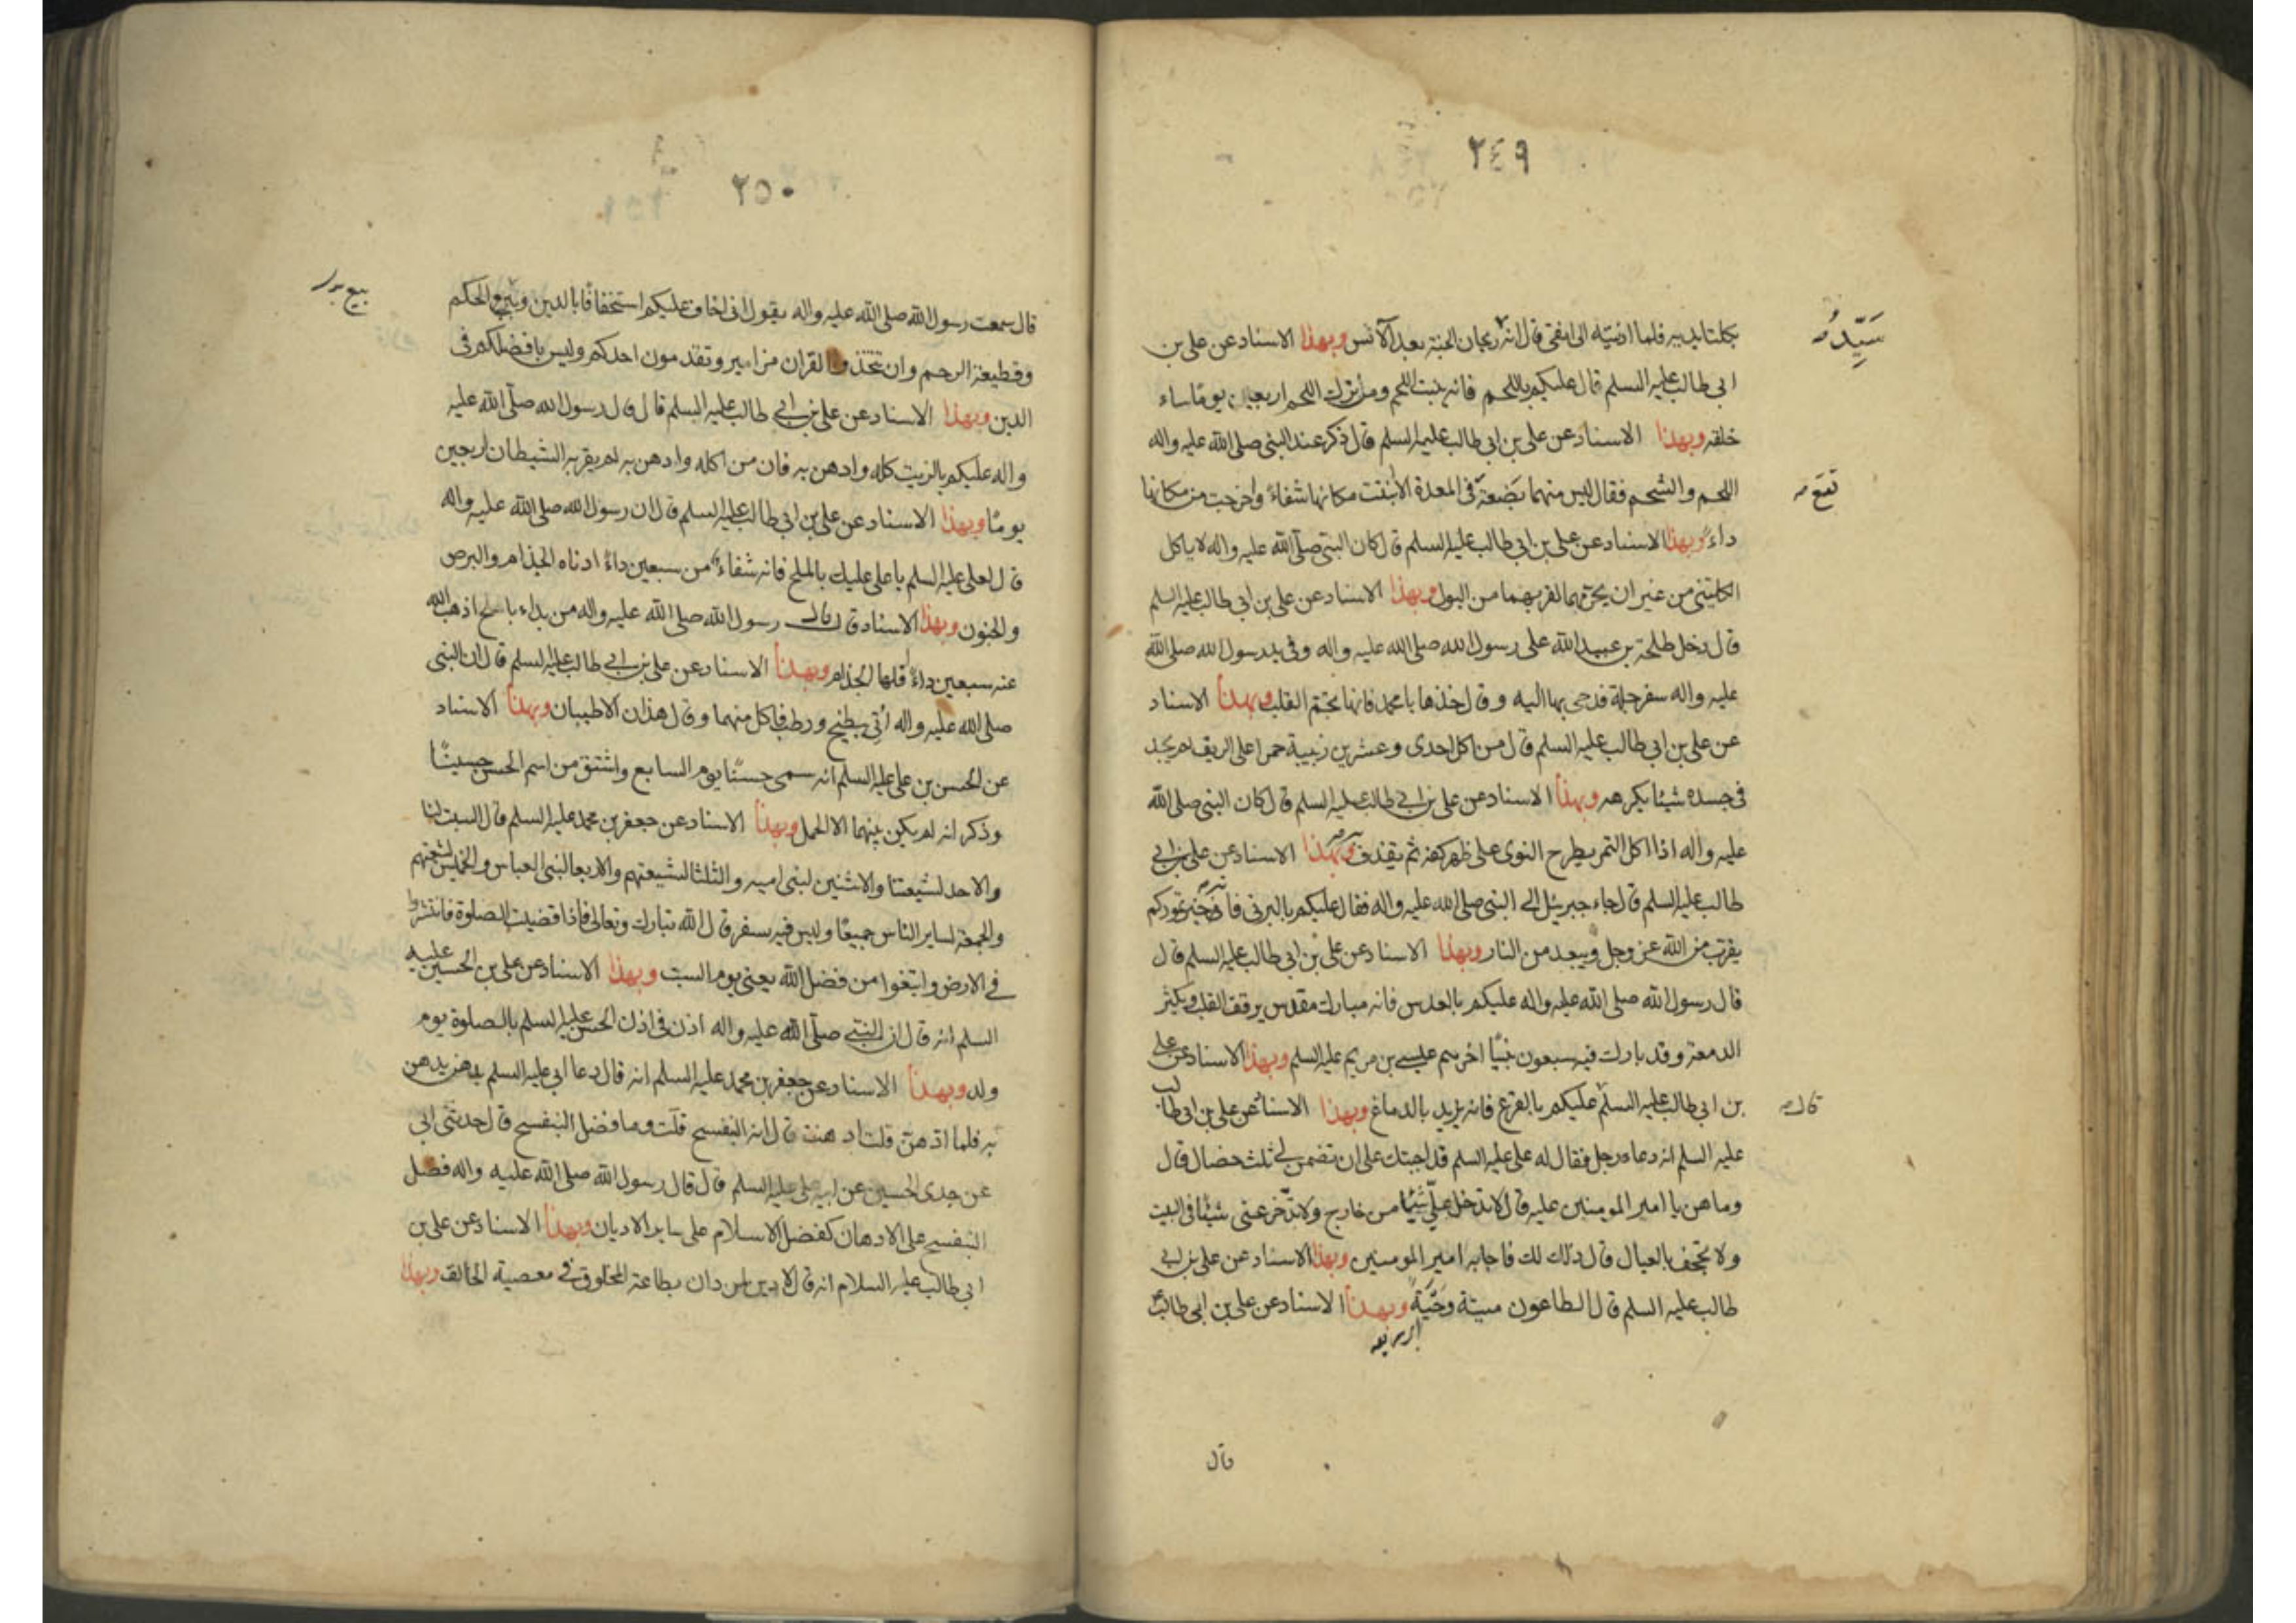 ٢٤٩
بكلتا يديه فلما ادنيته الى انفى قال انه ريحان الجنة بعد الآس وبهذا الاسناد عن على بن
سَيِّدُ
ابى طالب عليه السلم قال عليكم باللحم فانه ينبت اللحم ومن ترك اللحم اربعين يومًا ساء
خلقه وبهذا الاسناد عن على بن ابى طالب عليه السلم قال ذكر عند النبى صلى الله عليه واله
اللحم والشحم فقال ليس منهما بَضعة فى المعدة الا نبتت مكانها شفاءً واخرجت من مكانها
تقع
داءً وبهذا الاسناد عن على بن ابى طالب عليه السلم قال كان النبى صلّى الله عليه واله لا ياكل
الكليتين من غير ان يحرّمهما لقربهما من البول وبهذا الاسناد عن على بن ابى طالب عليه السلم
قال دخل طلحة بن عبيد الله على رسول الله صلى الله عليه واله وفى يد رسول الله صلى الله
عليه واله سفرجلة فدحى بها اليه وقال خذها يا محمد فانها تجمّ القلب وبهذا الاسناد
عن على بن ابى طالب عليه السلم قال من اكل احدى وعشرين زبيبة حمرا على الريق لم يجد
فى جسده شيئا يكرهه وبهذا الاسناد عن على بن ابى طالب عليه السلم قال كان النبى صلى الله
عليه واله اذا اكل التمر يطرح النوى على ظهر كفه ثم يقذف به وبهذا الاسناد عن على بن ابى
طالب عليه السلم قال جاء جبرئيل الى النبى صلى الله عليه واله فقال عليكم بالبرنى فانه خير تموركم
يقرّب من الله عز وجل ويبعد من النار وبهذا الاسناد عن على بن ابى طالب عليه السلم قال
قال رسول الله صلى الله عليه واله عليكم بالعدس فانه مبارك مقدس يرقق القلب ويكثر
الدمعة وقد بارك فيه سبعون نبيًّا اخرهم عيسى بن مريم عليه السلم وبهذا الاسناد عن على
بن ابى طالب عليه السلم عليكم بالقرع فانه يزيد بالدماغ وبهذا الاسناد عن على بن ابى طالب
قال
عليه السلم انه دعاه رجل فقال له على عليه السلم قد اجبتك على ان تضمن لى ثلث خصال قال
وما هن يا امير المومنين عليه قال لا تدخل علىّ شيئًا من خارج ولا تدّخر عنى شيئًا فى البيت
ولا تجحف بالعيال قال ذلك لك فاجابه امير المومنين وبهذا الاسناد عن على بن ابى
طالب عليه السلم قال الطاعون ميتة وَحِيَّة وبهذا الاسناد عن على بن ابى طالب
قال
٢٥٠
قال سمعت رسول الله صلى الله عليه واله يقول انى اخاف عليكم استخفافًا بالدين وبيع الحكم
بيع
وقطيعة الرحم وان تتخذوا القران مزامير وتقدمون احدكم وليس بافضلكم فى
الدين وبهذا الاسناد عن على بن ابى طالب عليه السلم قال قال رسول الله صلّى الله عليه
واله عليكم بالزيت كله وادهن به فان من اكله وادهن به لم يقربه الشيطان اربعين
يومًا وبهذا الاسناد عن على بن ابى طالب عليه السلم قال ان رسول الله صلى الله عليه واله
قال لعلى عليه السلم يا على عليك بالملح فانه شفاء من سبعين داءً ادناه الجذام والبرص
والجنون وبهذا الاسناد قال قال رسول الله صلى الله عليه واله من بداء بالملح اذهب الله
عنه سبعين داءً اقلها الجذام وبهذا الاسناد عن على بن ابى طالب عليه السلم قال ان النبى
صلى الله عليه واله اُتِى ببطيخ ورطب فاكل منهما وقال هذان الاطيبان وبهذا الاسناد
عن الحسن بن على عليه السلم انه سمى حسنًا يوم السابع واشتق من اسم الحسن حسينًا
وذكر انه لم يكن بينهما الا الحمل وبهذا الاسناد عن جعفر بن محمد عليه السلم قال السبت لنا
والاحد لشيعتنا والاثنين لبنى اميه والثلثا لشيعتهم والاربعا لبنى العباس والخميس لشيعتهم
والجمعة لساير الناس جميعًا وليس فيه سفر قال الله تبارك وتعالى فاذا قضيت الصلوة فانتشروا
فى الارض وابتغوا من فضل الله يعنى يوم السبت وبهذا الاسناد عن على بن الحسين عليه
السلم انه قال ان النبى صلّى الله عليه واله اذن فى اذن الحسن عليه السلم بالصلوة يوم
ولد وبهذا الاسناد عن جعفر بن محمد عليه السلم انه قال دعا ابى عليه السلم بدهن يدهن
به فلما ادّهن قلت ادهنت قال انه البنفسج قلت وما فضل البنفسج قال حدثنى ابى
عن جدى الحسين عن ابيه على عليه السلم قال قال رسول الله صلى الله عليه واله فضل
البنفسج على الادهان كفضل الاسلام على ساير الاديان وبهذا الاسناد عن على بن
ابى طالب عليه السلام انه قال لا دين لمن دان بطاعة المخلوق فى معصية الخالق وبهذا